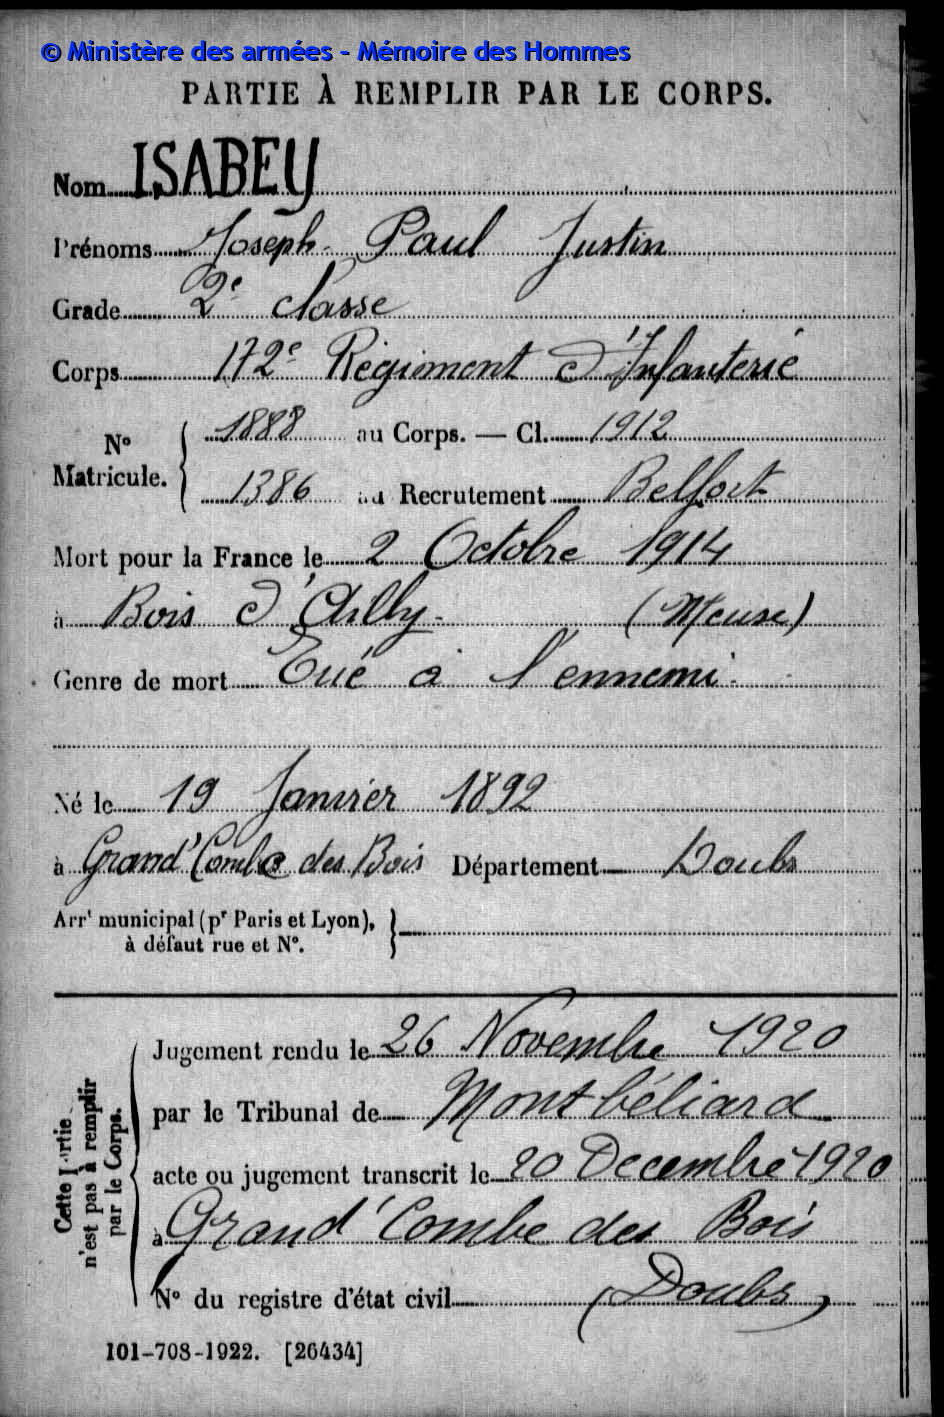 © Ministère des armées - Mémoire des Hommes
PARTIE À REMPLIR PAR LE CORPS.
Nom ISABEY
Prénoms Joseph Paul Justin
Grade 2e classe
Corps 172e Régiment d'Infanterie
N° Matricule. { 1888 au Corps. — Cl. 1912
1386 au Recrutement Belfort
Mort pour la France le 2 Octobre 1914
à Bois d'Ailly (Meuse)
Genre de mort Tué à l'ennemi
Né le 19 Janvier 1892
à Grand'Combe des Bois Département Doubs
Arrt municipal (pr Paris et Lyon),
à défaut rue et N°.
Cette Partie n'est pas à remplir par le Corps.
Jugement rendu le 26 Novembre 1920
par le Tribunal de Montbéliard
acte ou jugement transcrit le 20 Decembre 1920
à Grand'Combe des Bois
N° du registre d'état civil (Doubs)
101-708-1922. [26434]